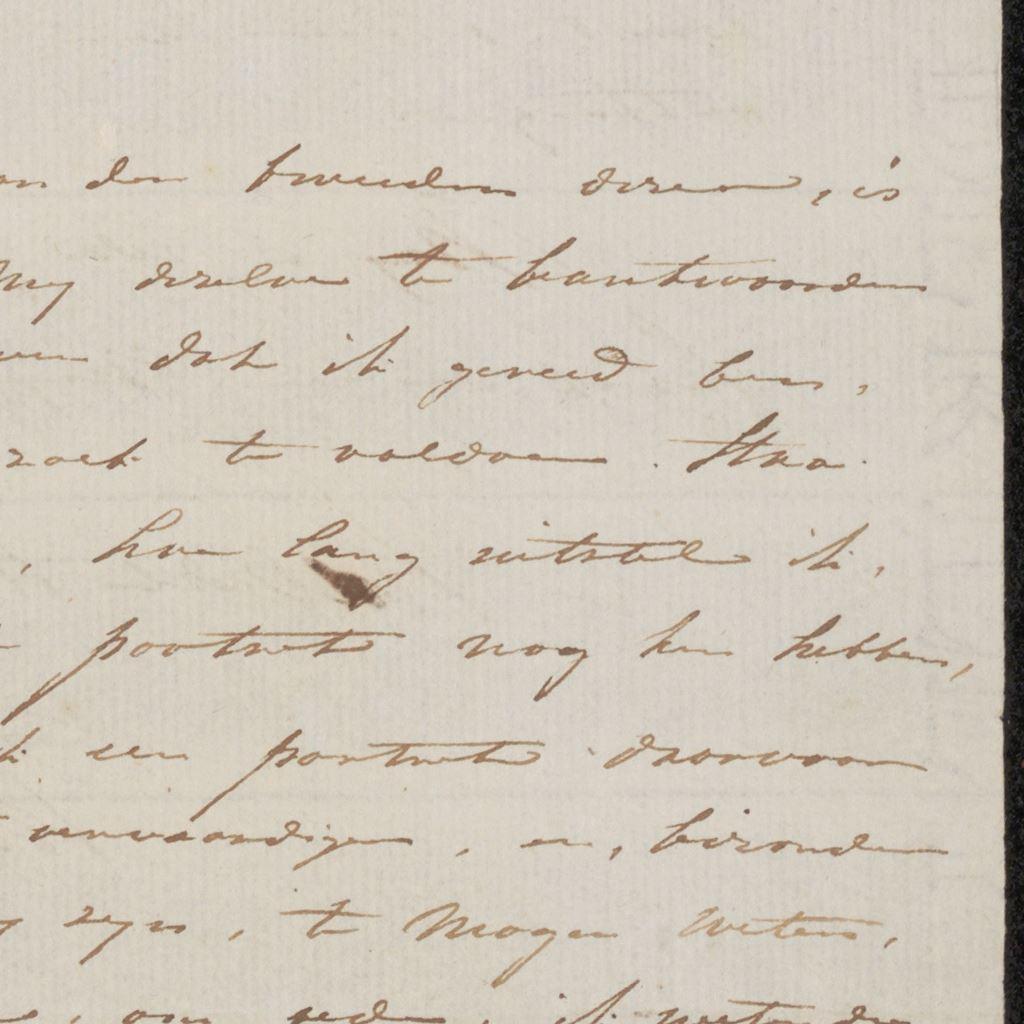 den tweeden dezer, is
my dezelve te beantwoorden
dat ik gereed ben,
te voldoen. Staa
, hoe lang uitstel ik,
portret nog kan hebben,
een portret daarvoor
vervaardigen, en, bizonder
zyn, te mogen weten,